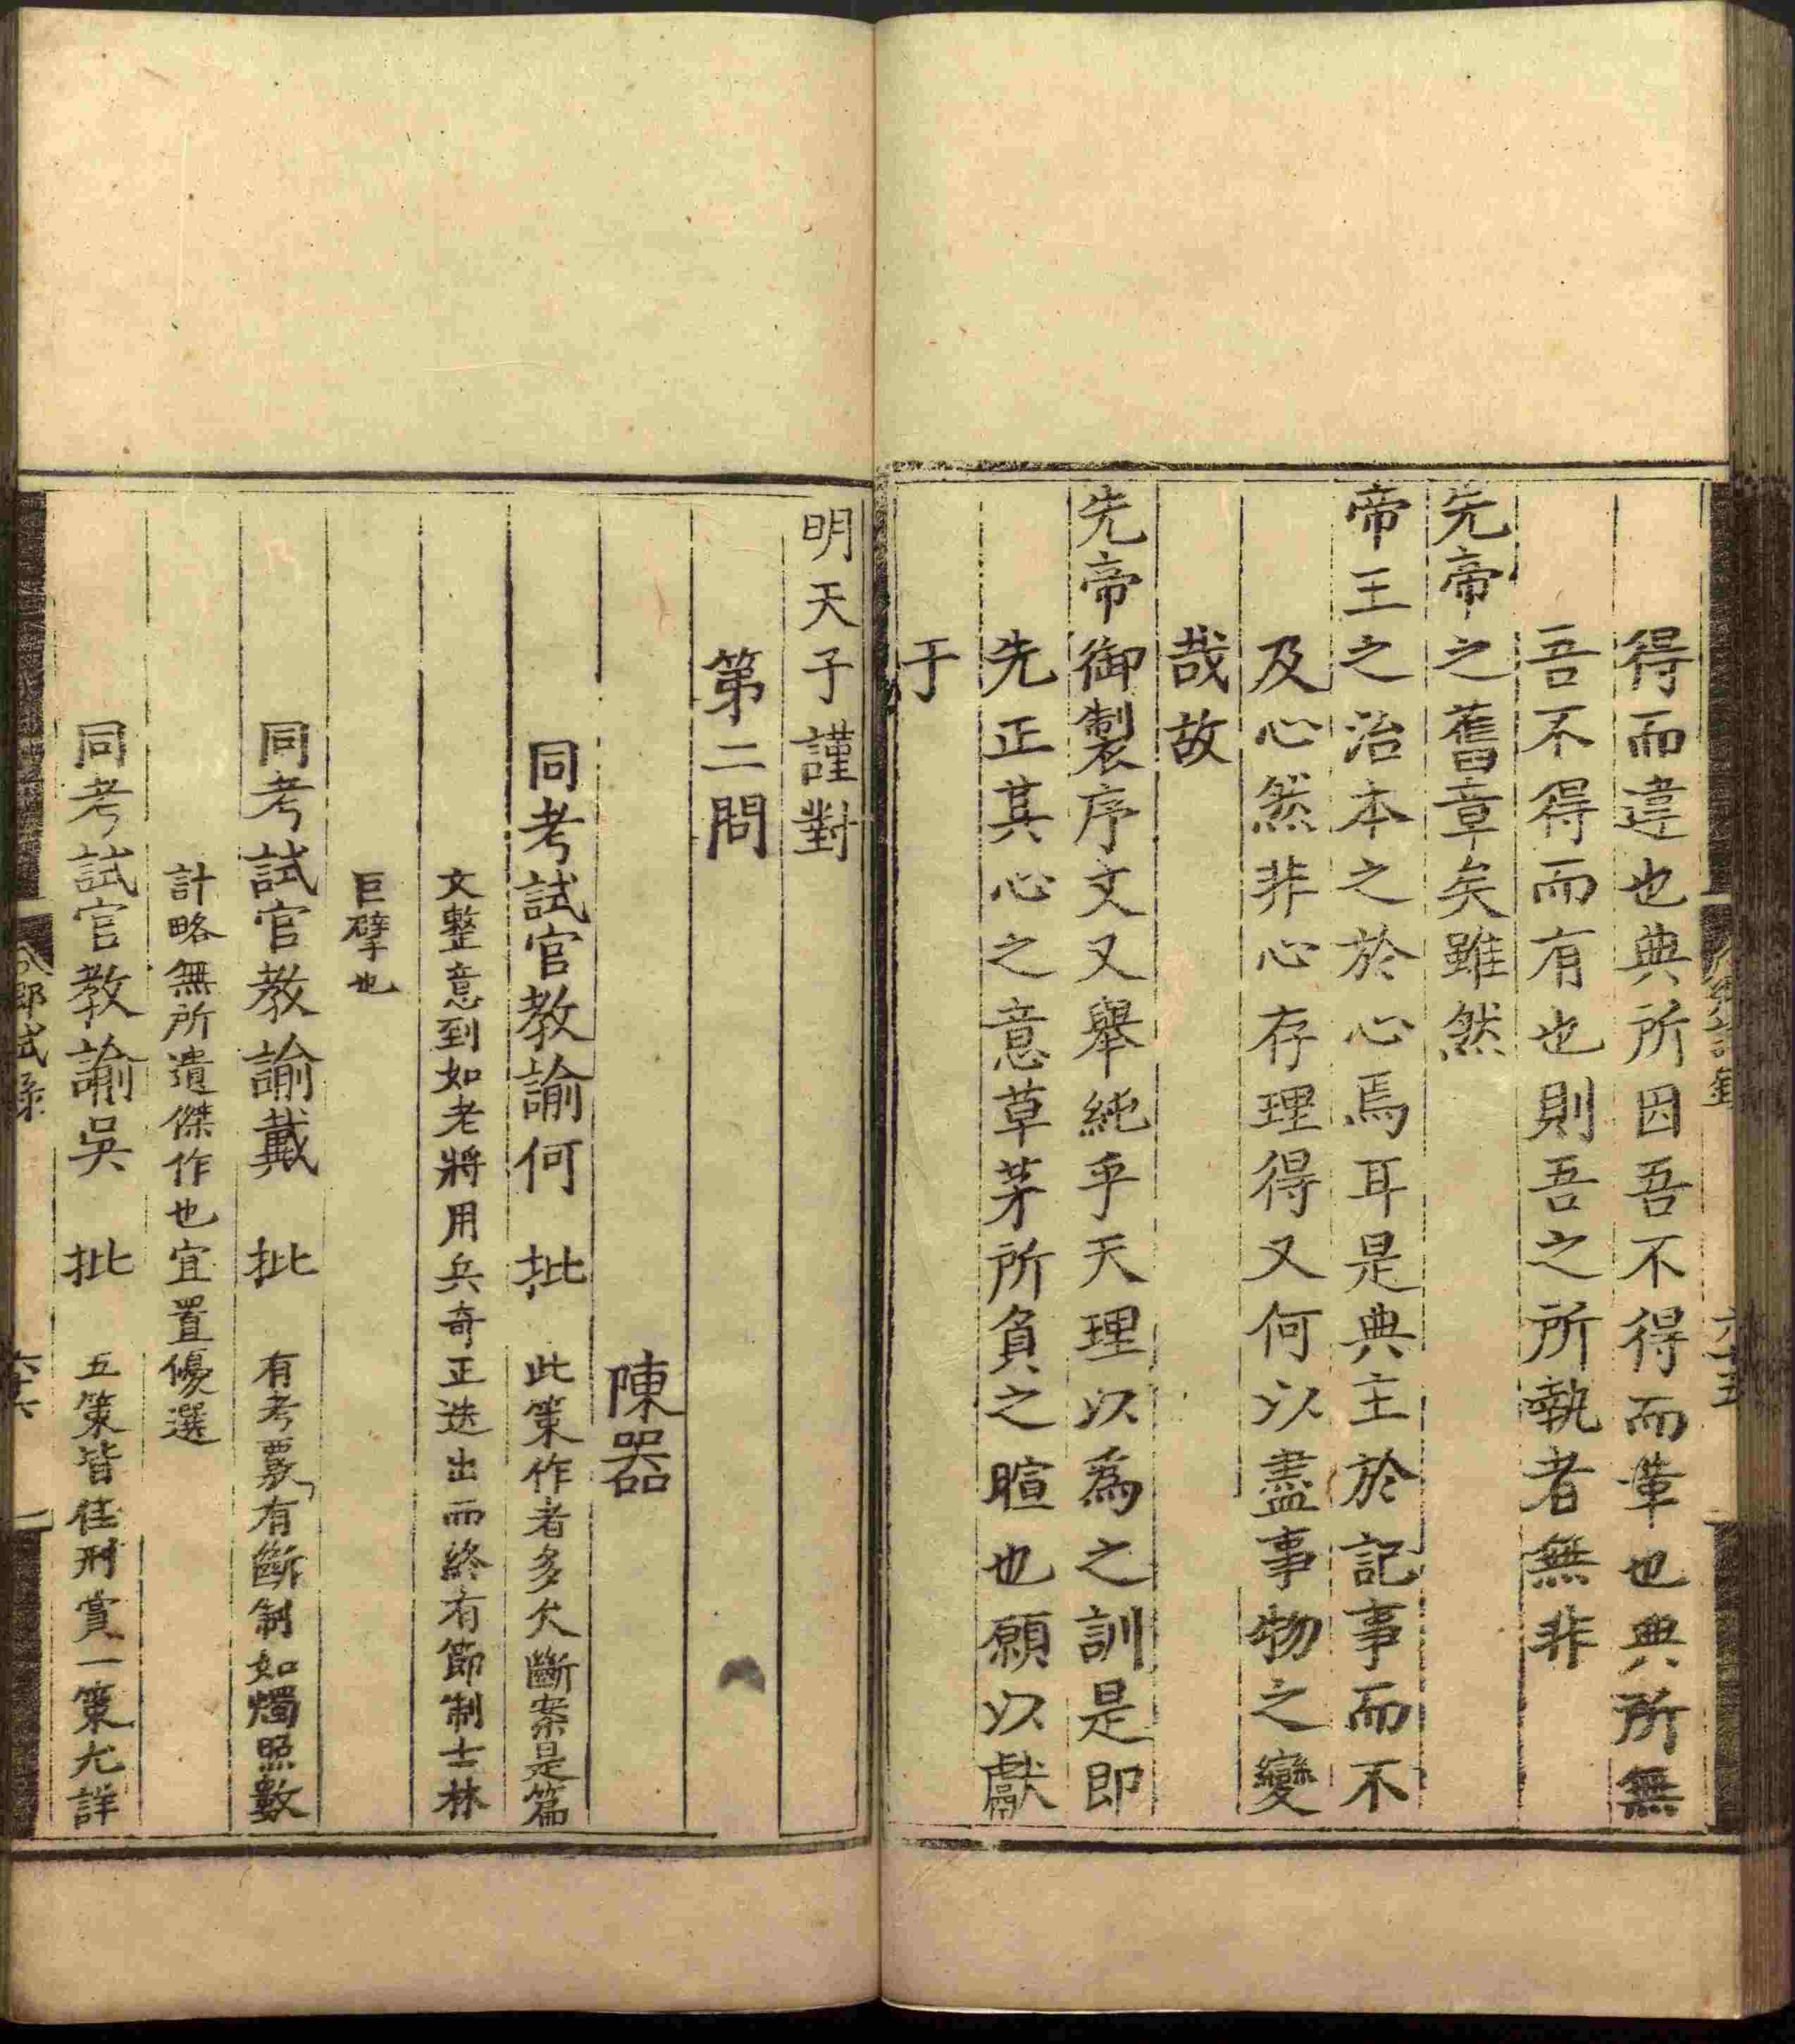 得而違也典所因吾不得而革也典所無
吾不得而有也則吾之所執者無非
先帝之舊章矣雖然
帝王之治本之於心焉耳是典主於記事而不
及心然非心存理得又何以盡事物之變
哉故
先帝御製序文又舉純乎天理以爲之訓是即
先正其心之意草茅所負之暄也願以獻
于
明天子謹對
第二問
陳器
同考試官教諭何 批 此策作者多欠斷案是篇
文整意到如老將用兵奇正迭出而終有節制士林
巨擘也
同考試官教諭戴 批 有考覈有斷制如燭照數
計略無所遺傑作也宜置優選
同考試官教諭吳 批 五策皆佳刑賞一策尤詳
六十六